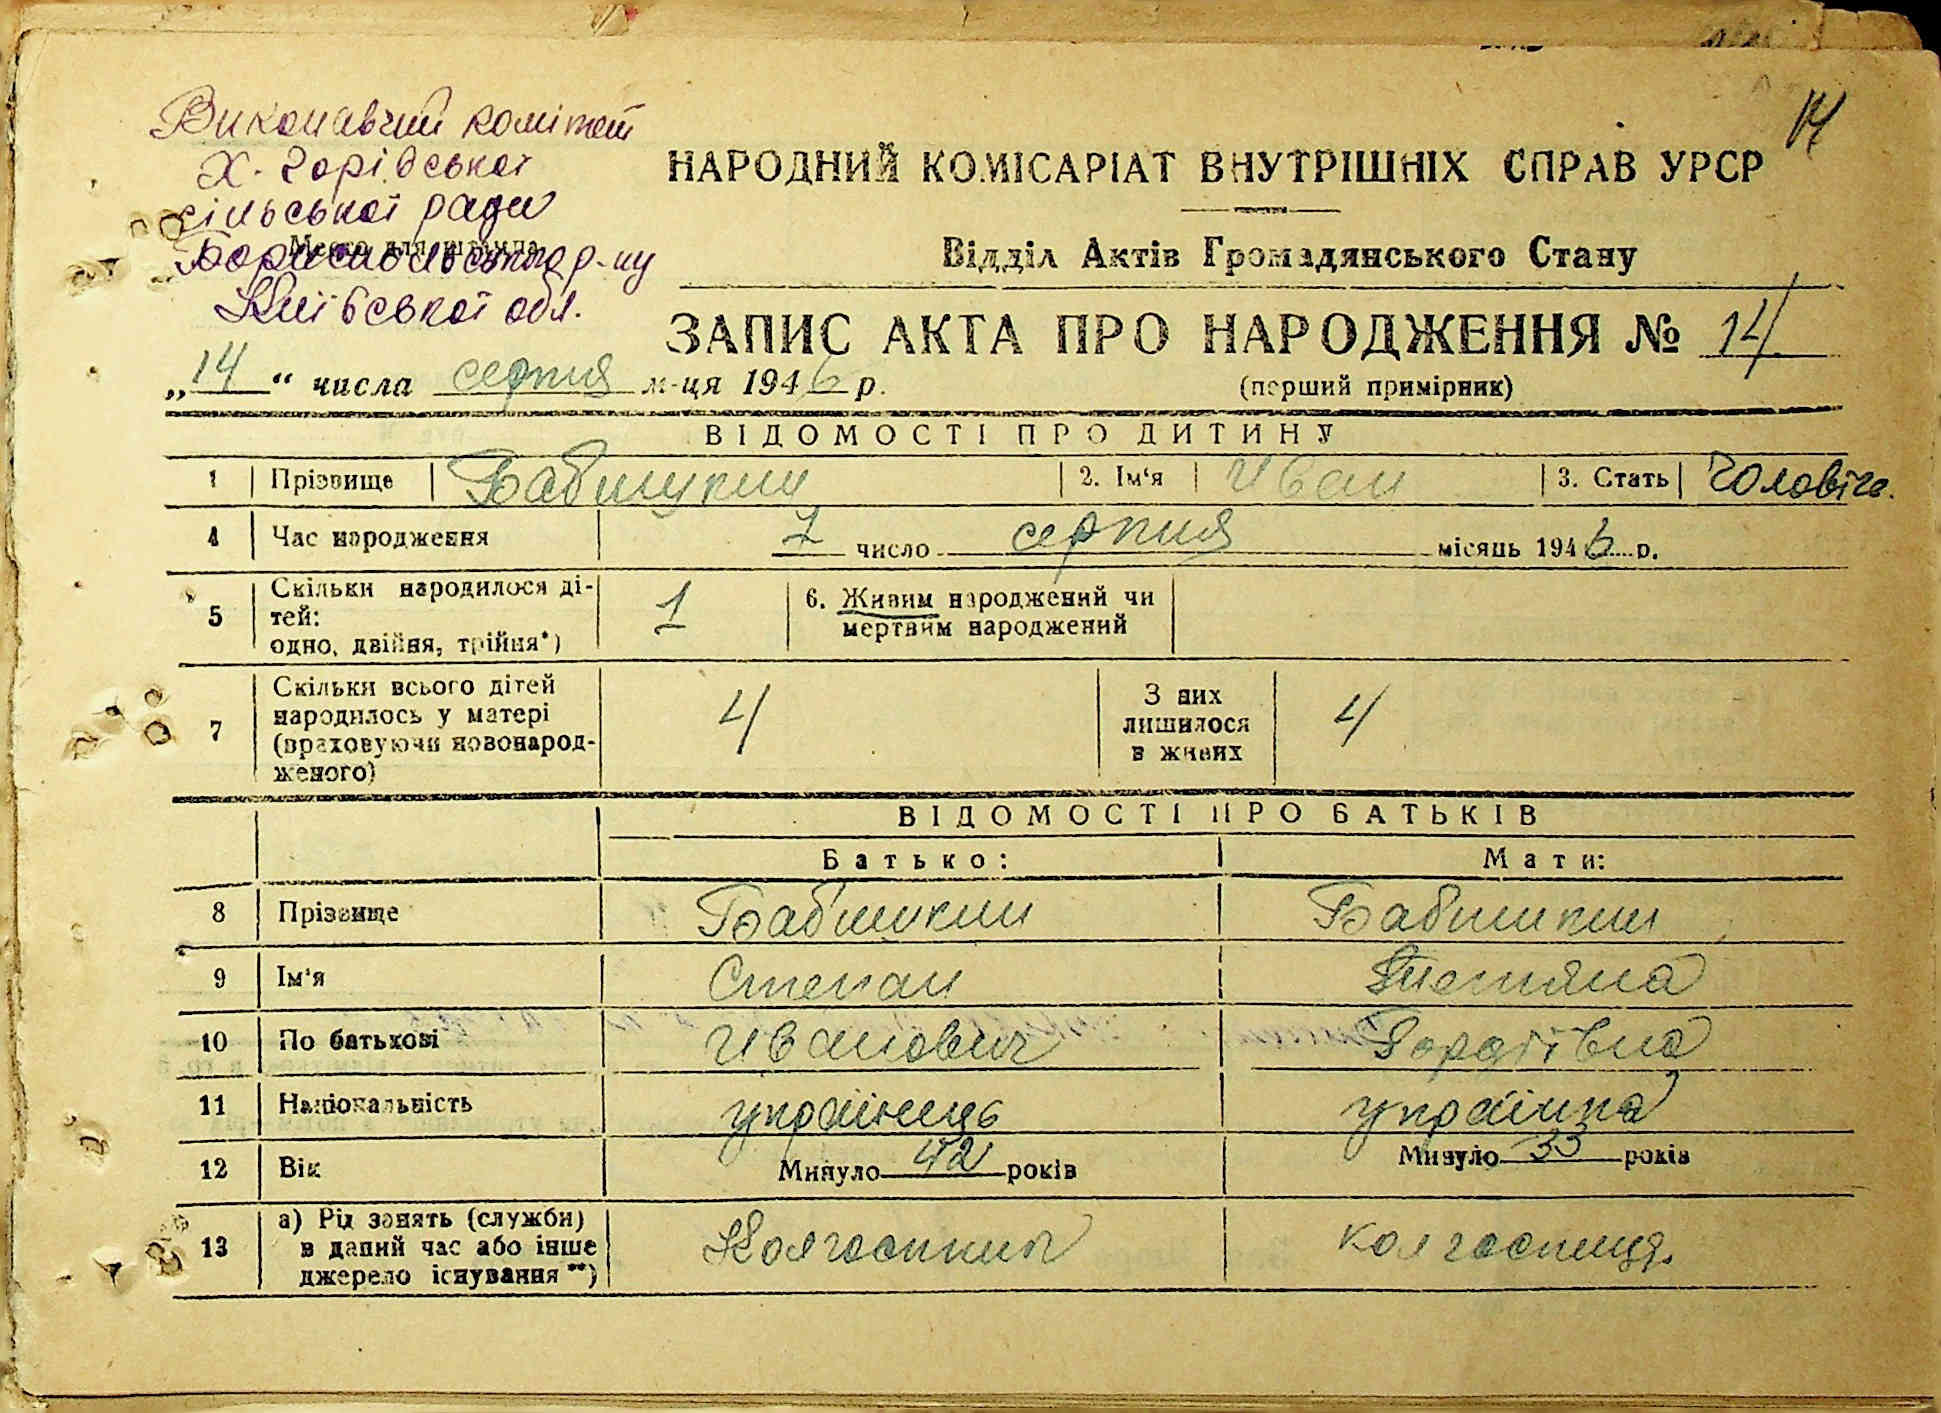 14
Виконавчий комітет
Х. Горівської
сільської ради
Місце для штампа
Бориспольського р-ну
Київської обл.
НАРОДНИЙ КОМІСАРІАТ ВНУТРІШНІХ СПРАВ УРСР
Відділ Актів Громадянського Стану
ЗАПИС АКТА ПРО НАРОДЖЕННЯ № 14
„14“ числа серпня м-ця 1946 р.
(перший примірник)
ВІДОМОСТІ ПРО ДИТИНУ
1 Прізвище Бабишкин 2. Ім'я Иван 3. Стать Чоловіча.
4 Час народження 7 число серпня місяць 1946 р.
5 Скільки народилося ді-
тей:
одно, двійня, трійня*) 1
6. Живим народжений чи
мертвим народжений
7 Скільки всього дітей
народилось у матері
(враховуючи новонарод-
женого) 4
З них
лишилося
в живих 4
ВІДОМОСТІ ПРО БАТЬКІВ
Батько: Мати:
8 Прізвище Бабишкин Бабишкин
9 Ім'я Степан Тетяна
10 По батькові Иванович Гордіївна
11 Національність українець українка
12 Вік Минуло 42 років Минуло 33 років
13 а) Рід занять (служби)
в даний час або інше
джерело існування **) Колгоспник колгоспниця.